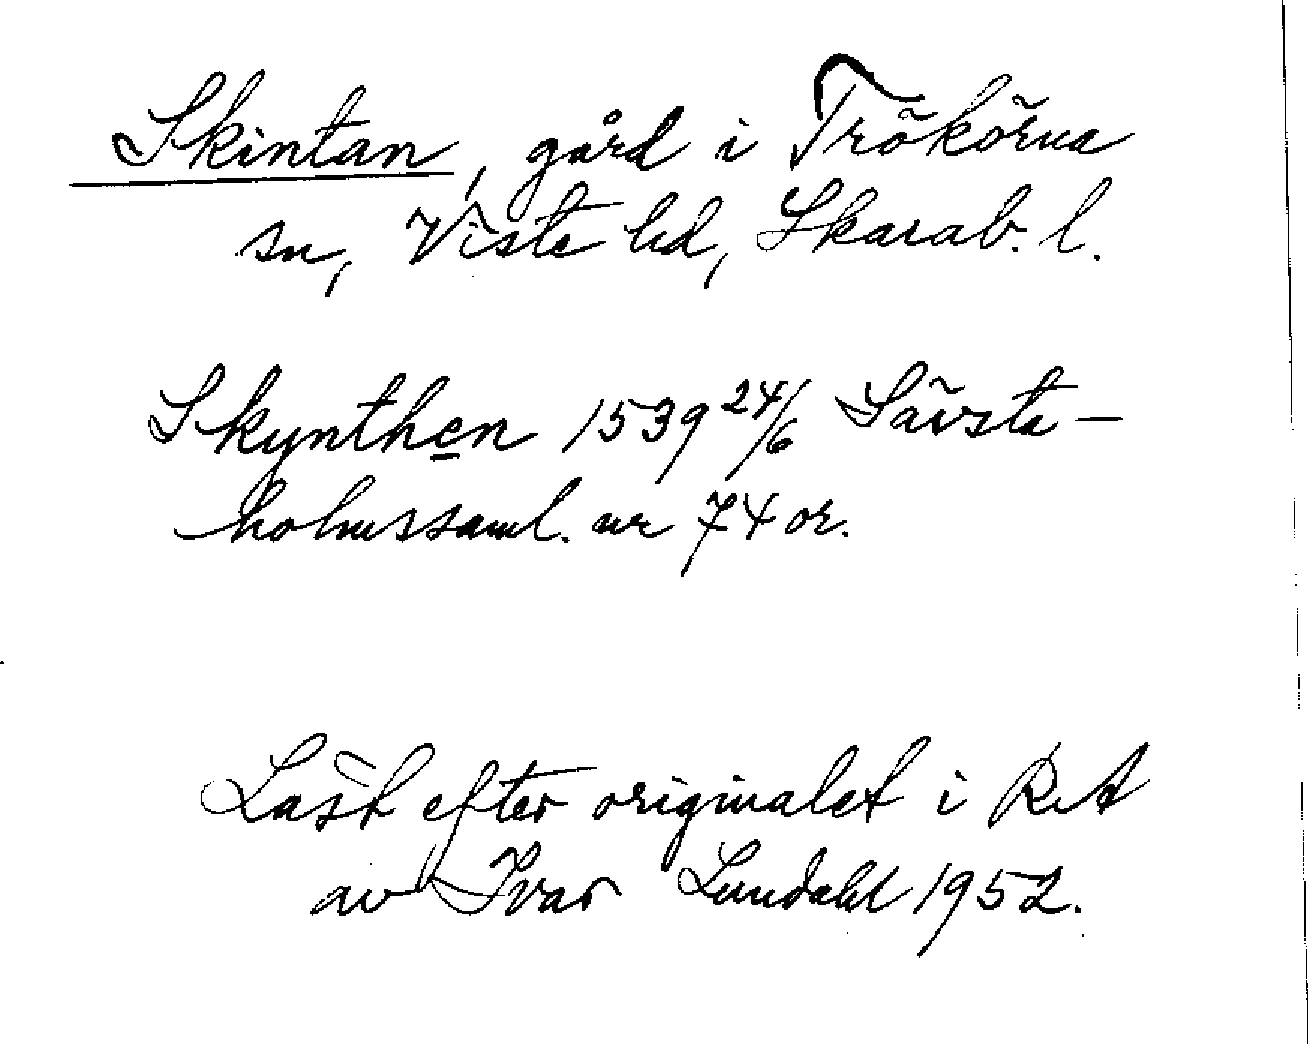 Skintan, gård i Trökörna
sn, Viste hd, Skarab. l.
Skynthen 1539 24/6 Sävsta-
holmssaml. nr 74 or.
Läst efter originalet i RA
av Ivar Lundahl 1952.